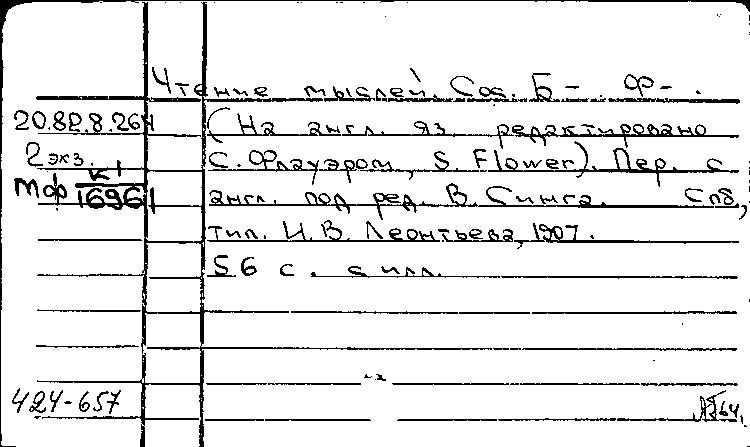 Чтение мыслей. Сос. Б - . Ф - .
20.82.8.264
(На англ. яз. редактировано
2 экз.
С. Флауэром, S. Flower). Пер. с
Мф К1/16961
англ. под ред. В. Синга. Спб.,
тип. И. В. Леонтьева, 1907.
56 с. с илл.
424-657